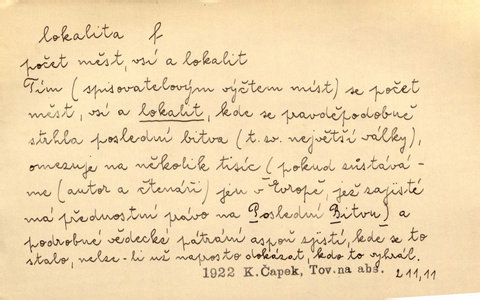 lokalita f
počet měst, vsí a lokalit
Tím (spisovatelovým výčtem míst) se počet
měst, vsí a lokalit, kde se pravděpodobně
strhla poslední bitva (t. zv. největší války),
omezuje na několik tisíc (pokud zůstává-
me (autor a čtenáři) jen v Evropě, jež zajisté
má přednostní právo na Poslední Bitvu) a
podrobné vědecké pátrání aspoň zjistí, kde se to
stalo, nelze-li už naprosto dokázat, kdo to vyhrál.
1922 K. Čapek, Tov. na abs. 211,11